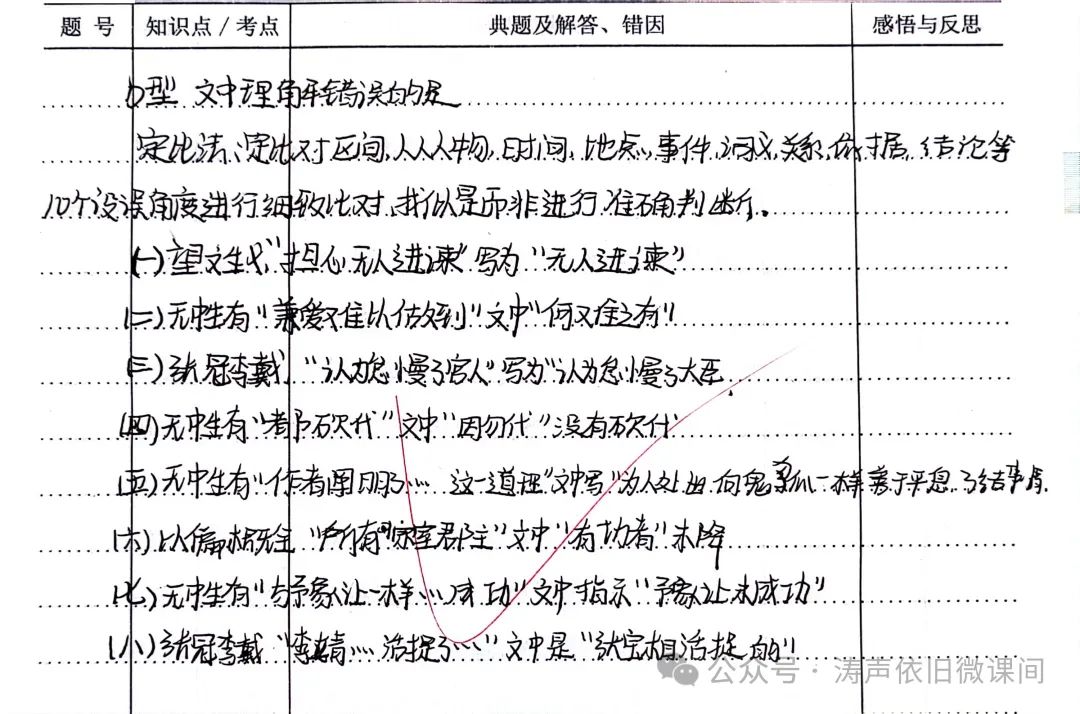 题 号 知识点/考点 典题及解答、错因 感悟与反思
D型 文中理解错误的是
定比法:定比对区间,从人物,时间,地点,事件,词义,关系,依据,结论等
10个设误角度进行细致比对,找似是而非进行准确判断。
(一)望文生义"担心无人进谏"写为"无人进谏"
(二)无中生有"兼爱难以做到"文中"何难之有"
(三)张冠李戴,"认为怠慢了宫人"写为"认为怠慢了大臣,
(四)无中生有"都砍伐"文中"因勿伐"没有砍伐
(五)无中生有"作者阐明了…这一道理"文中写"为人处世
(六)以偏概全"所有宗室郡主"文中"有功者"未降
(七)无中生有"与予象让一样…成功"文中指示"予象让未成功"
(八)张冠李戴"李靖…活捉了…"文中是"张宝相活捉的"
公众号·涛声依旧微课间